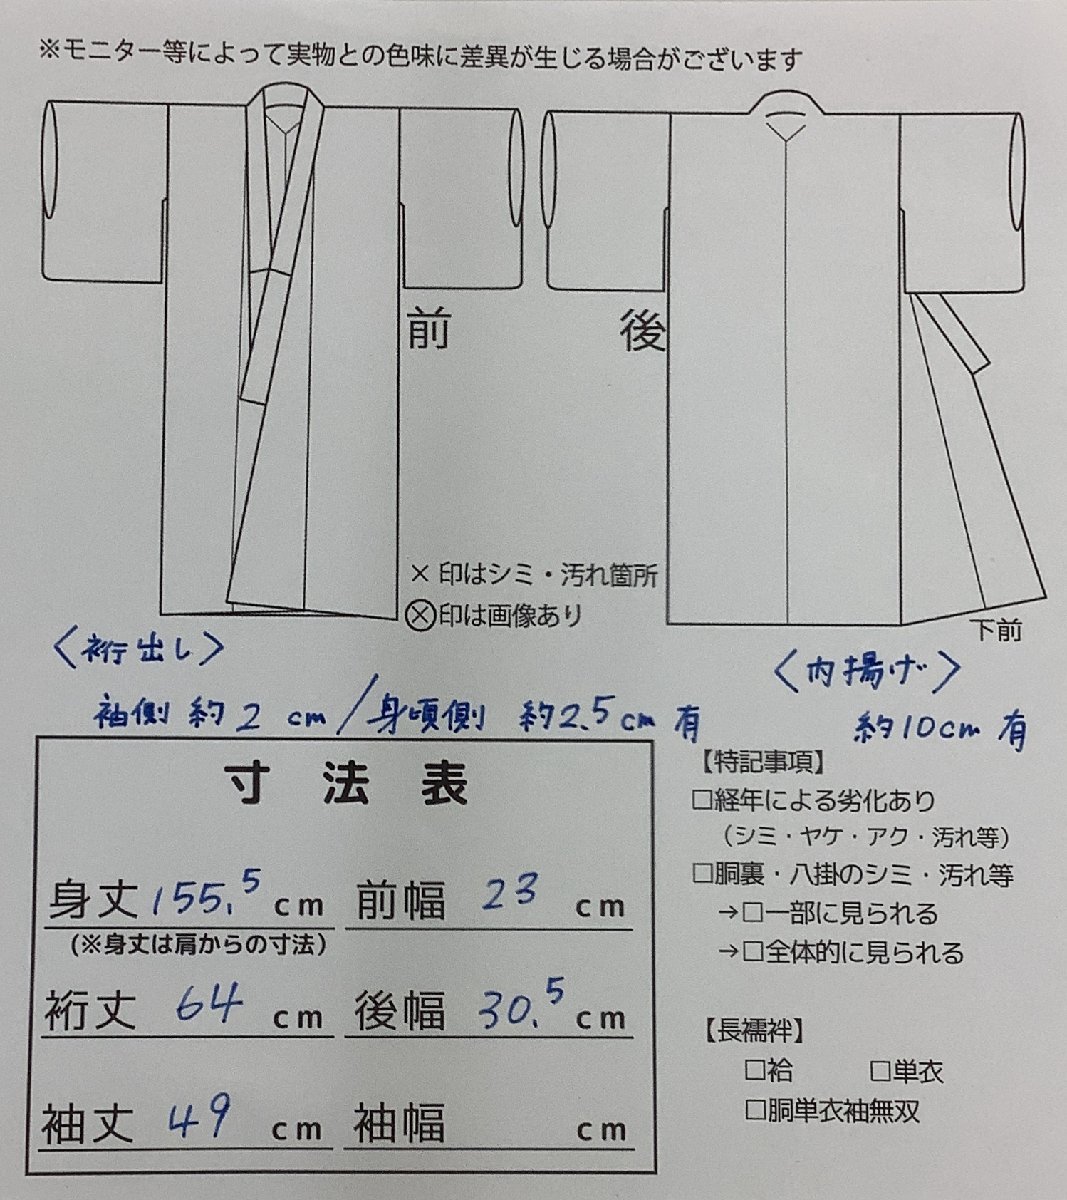 ※モニター等によって実物との色味に差異が生じる場合がございます
前
後
×印はシミ・汚れ箇所
Ⓧ印は画像あり
下前
〈裄出し〉
袖側 約2cm/身頃側 約2.5cm有
〈内揚げ〉
約10cm有
寸法表
身丈 155.5 cm 前幅 23 cm
(※身丈は肩からの寸法)
裄丈 64 cm 後幅 30.5 cm
袖丈 49 cm 袖幅 cm
【特記事項】
□経年による劣化あり
(シミ・ヤケ・アク・汚れ等)
□胴裏・八掛のシミ・汚れ等
→□一部に見られる
→□全体的に見られる
【長襦袢】
□袷 □単衣
□胴単衣袖無双